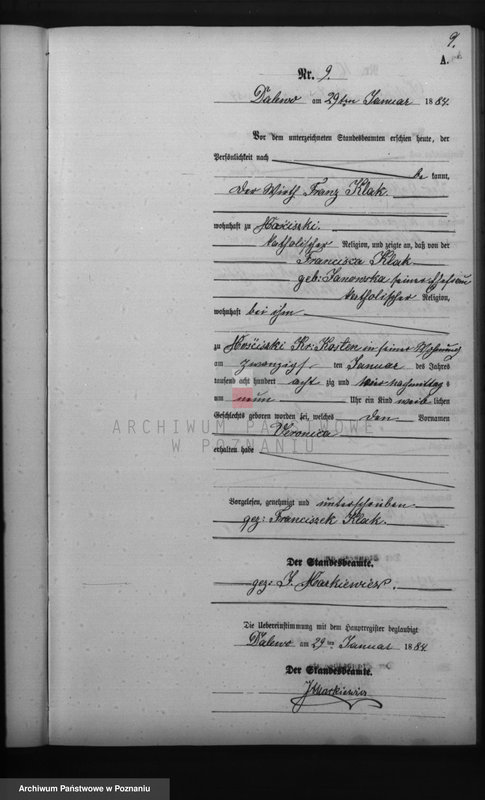 9.
A.
Nr. 9.
Dalewo am 29ten Januar 1884.
Vor dem unterzeichneten Standesbeamten erschien heute, der
Persönlichkeit nach
be kannt,
der Wirth Franz Klak.
wohnhaft zu Mościszki.
katholischer Religion, und zeigte an, daß von der
Francisca Klak
geb: Janowska seiner Ehefrau
katholischer Religion,
wohnhaft bei ihm
zu Mościszki Kr: Kosten in seiner Wohnung
am zwanzigsten Januar des Jahres
tausend acht hundert acht zig und vier nachmittag s
um neun Uhr ein Kind weib lichen
Geschlechts geboren worden sei, welches den Vornamen
Veronica
erhalten habe
ARCHIWUM PAŃSTWOWE
W POZNANIU
Vorgelesen, genehmigt und unterschrieben.
gez: Franciszek Klak.
Der Standesbeamte.
gez: J. Markiewicz.
Die Uebereinstimmung mit dem Hauptregister beglaubigt
Dalewo am 29ten Januar 1884
Der Standesbeamte.
JMarkiewicz
Archiwum Państwowe w Poznaniu